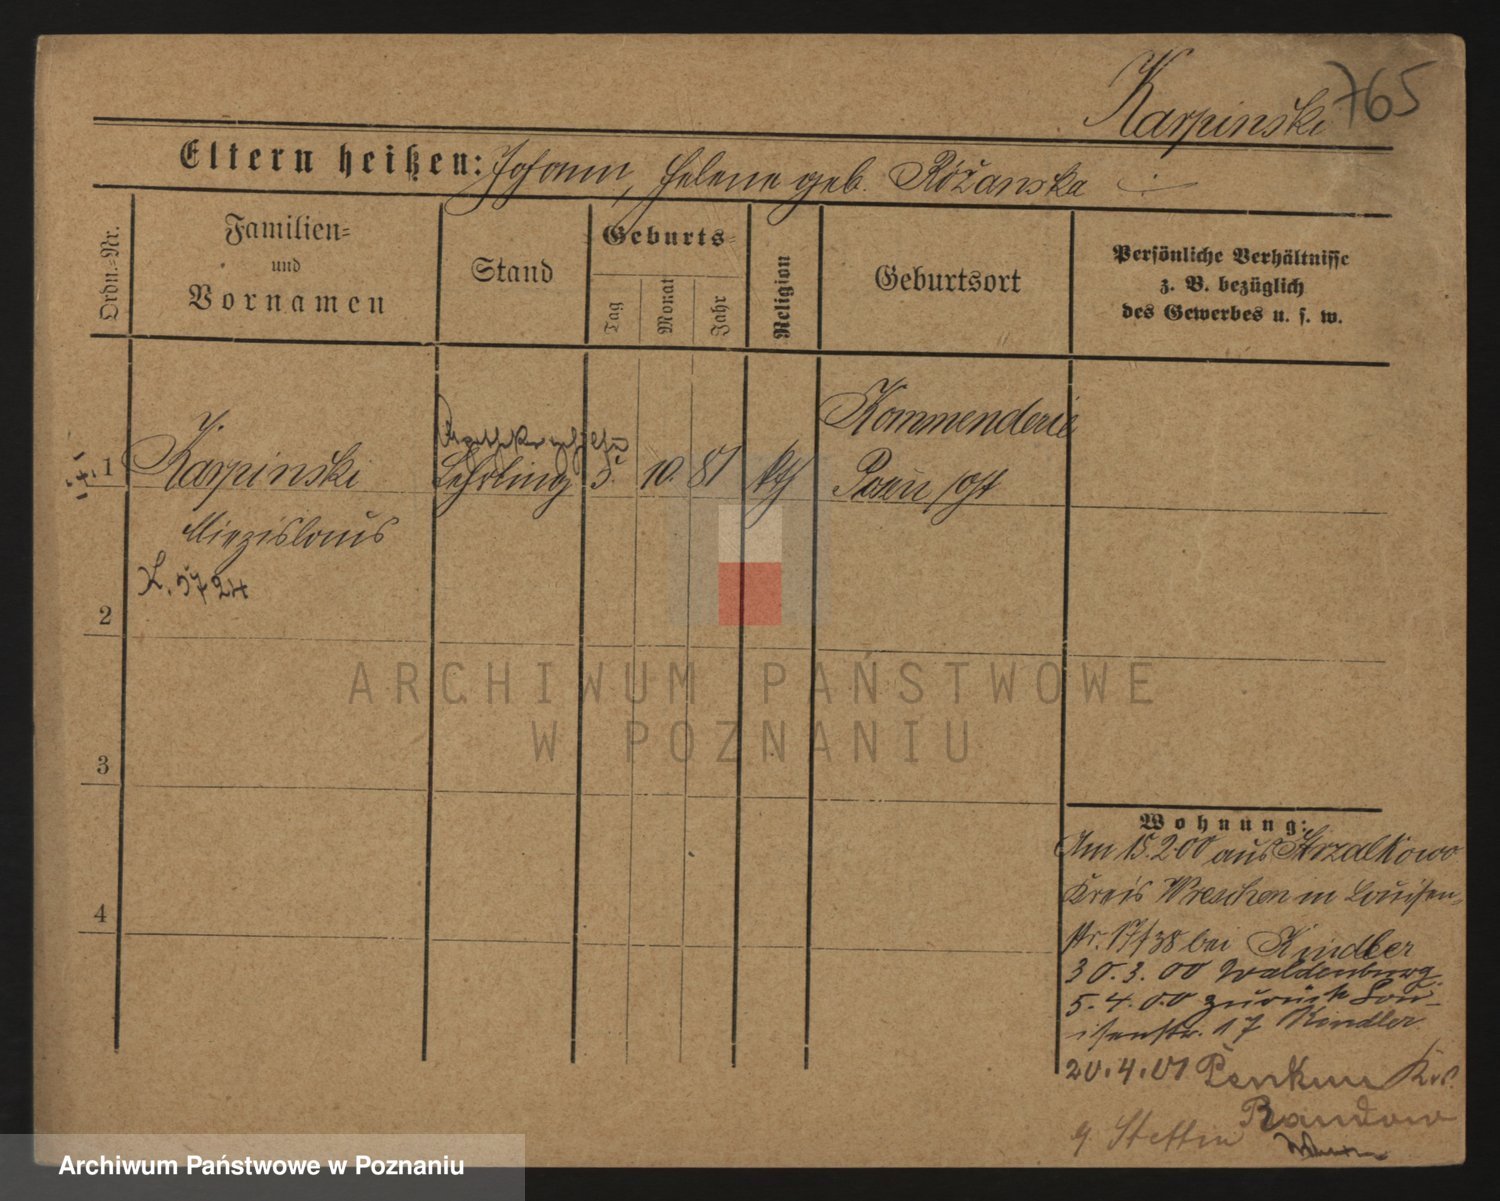 Karpinski 765
Eltern heißen: Johann, Helene geb. Różanska
Ordn.=Nr.
Familien=
und
Vornamen
Stand
Geburts=
Tag
Monat
Jahr
Religion
Geburtsort
Persönliche Verhältnisse
z. B. bezüglich
des Gewerbes u. s. w.
1 Karpinski
Miezislaus
L. 5724
Lehrling
5. 10. 81 kth
Kommenderie
Posen Ost
2
3
4
ARCHIWUM PAŃSTWOWE
W POZNANIU
Wohnung:
Am 15.2 00 aus Strzalkowo
Kreis Wreschen in Louisen-
str. 17/38 bei Kindler
30.3.00 Waldenburg
5.4.00 zurück Lou-
isenstr. 17 Kindler
20.4.01 Penkun Krs.
Randow
Stettin
Archiwum Państwowe w Poznaniu